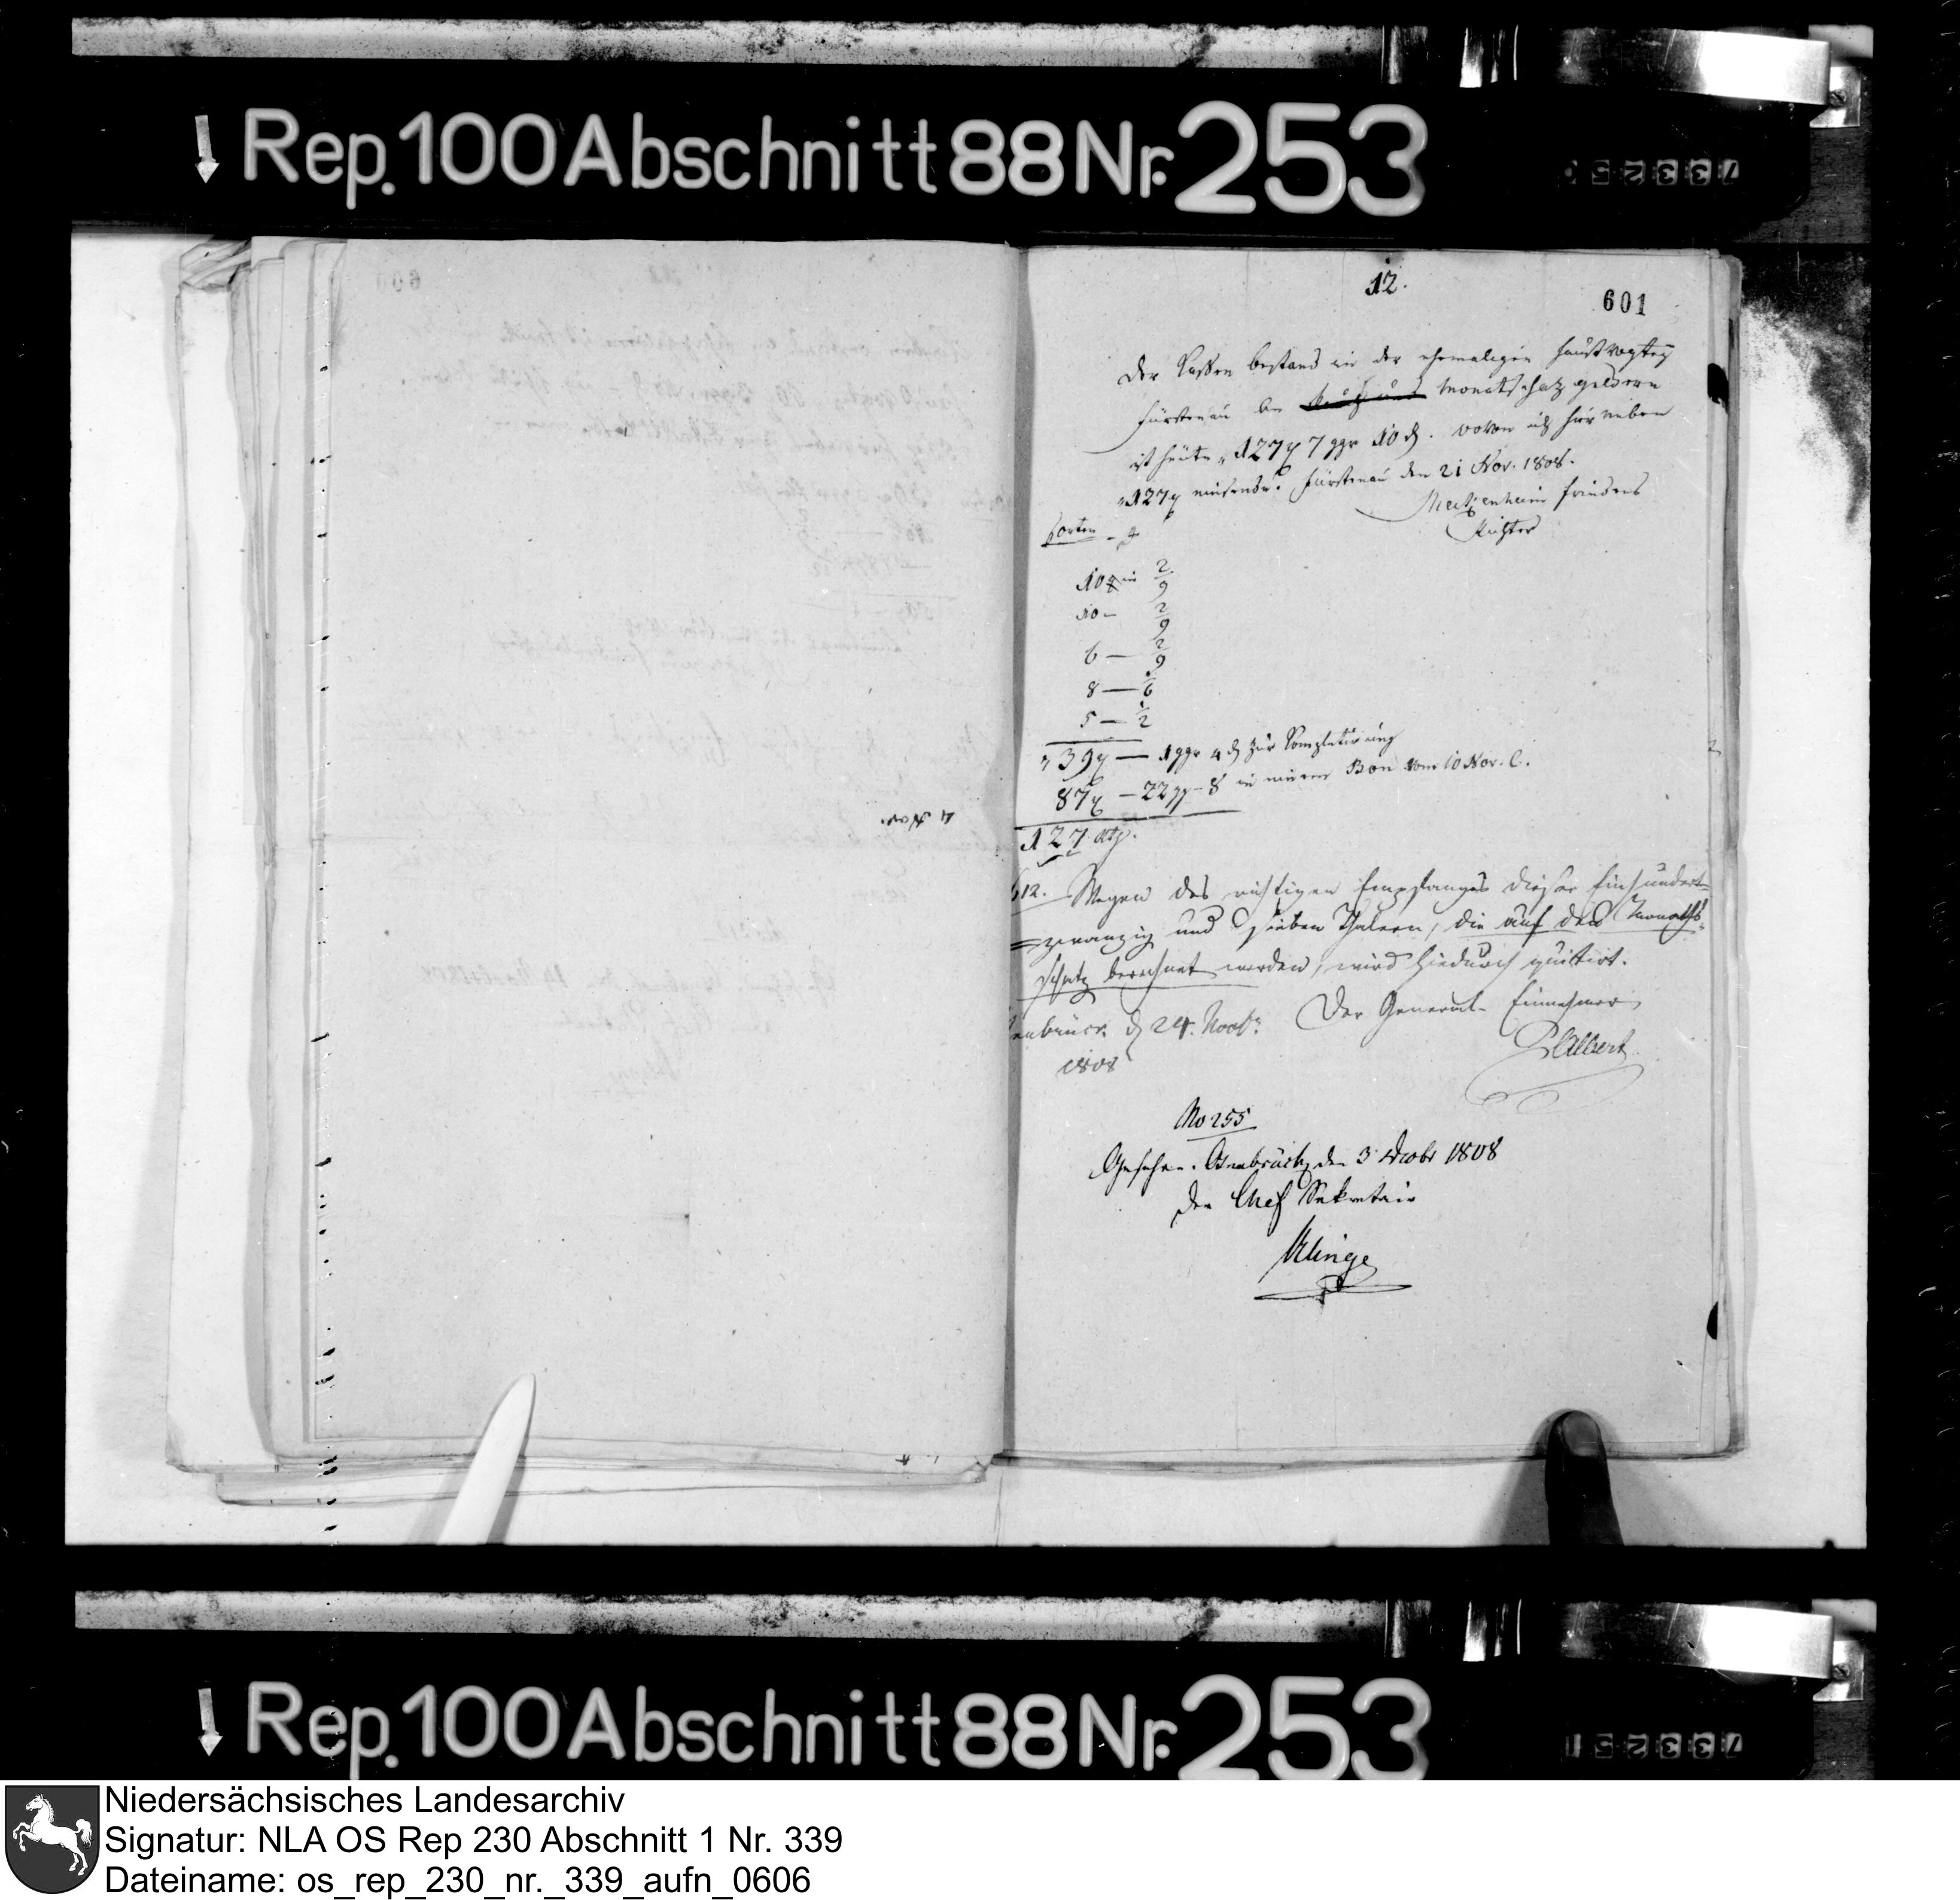 Rep. 100 Abschnitt 88 Nr. 253
733250
12.
601
Der Cassen bestand in der ehemaligen Haustvogtey
Fürstenau an Monatschatz geldern
ist heute „127 7 ggr 10 d. wovon ich hierneben
„127 einsende. Fürstenau den 21 Nov. 1808.
Friedens
Richter
Sorten
10 in 2/9
10 — 2/9
6 — 2/9
8 — 1/6
5 — 1/2
„39 — 1 ggr 4 d zur Completirung
87 — 22 gg — 8 in einem Bon vom 10 Nov. C.
127 rtl.
612. Wegen des richtigen Empfanges dieser Einhundert=
=zwanzig und sieben Thalern, die auf den Monaths=
schatz berechnet werden, wird hiedurch quittirt.
Osnabrück d 24. Novbr. Der General-Einnehmer
1808
Albert
4 Nov.
No 255
Gesehen. Osnabrück den 3 Decbr 1808
Der Chef Sekretair
Klinge
Rep. 100 Abschnitt 88 Nr. 253
733251
Niedersächsisches Landesarchiv
Signatur: NLA OS Rep 230 Abschnitt 1 Nr. 339
Dateiname: os_rep_230_nr._339_aufn_0606